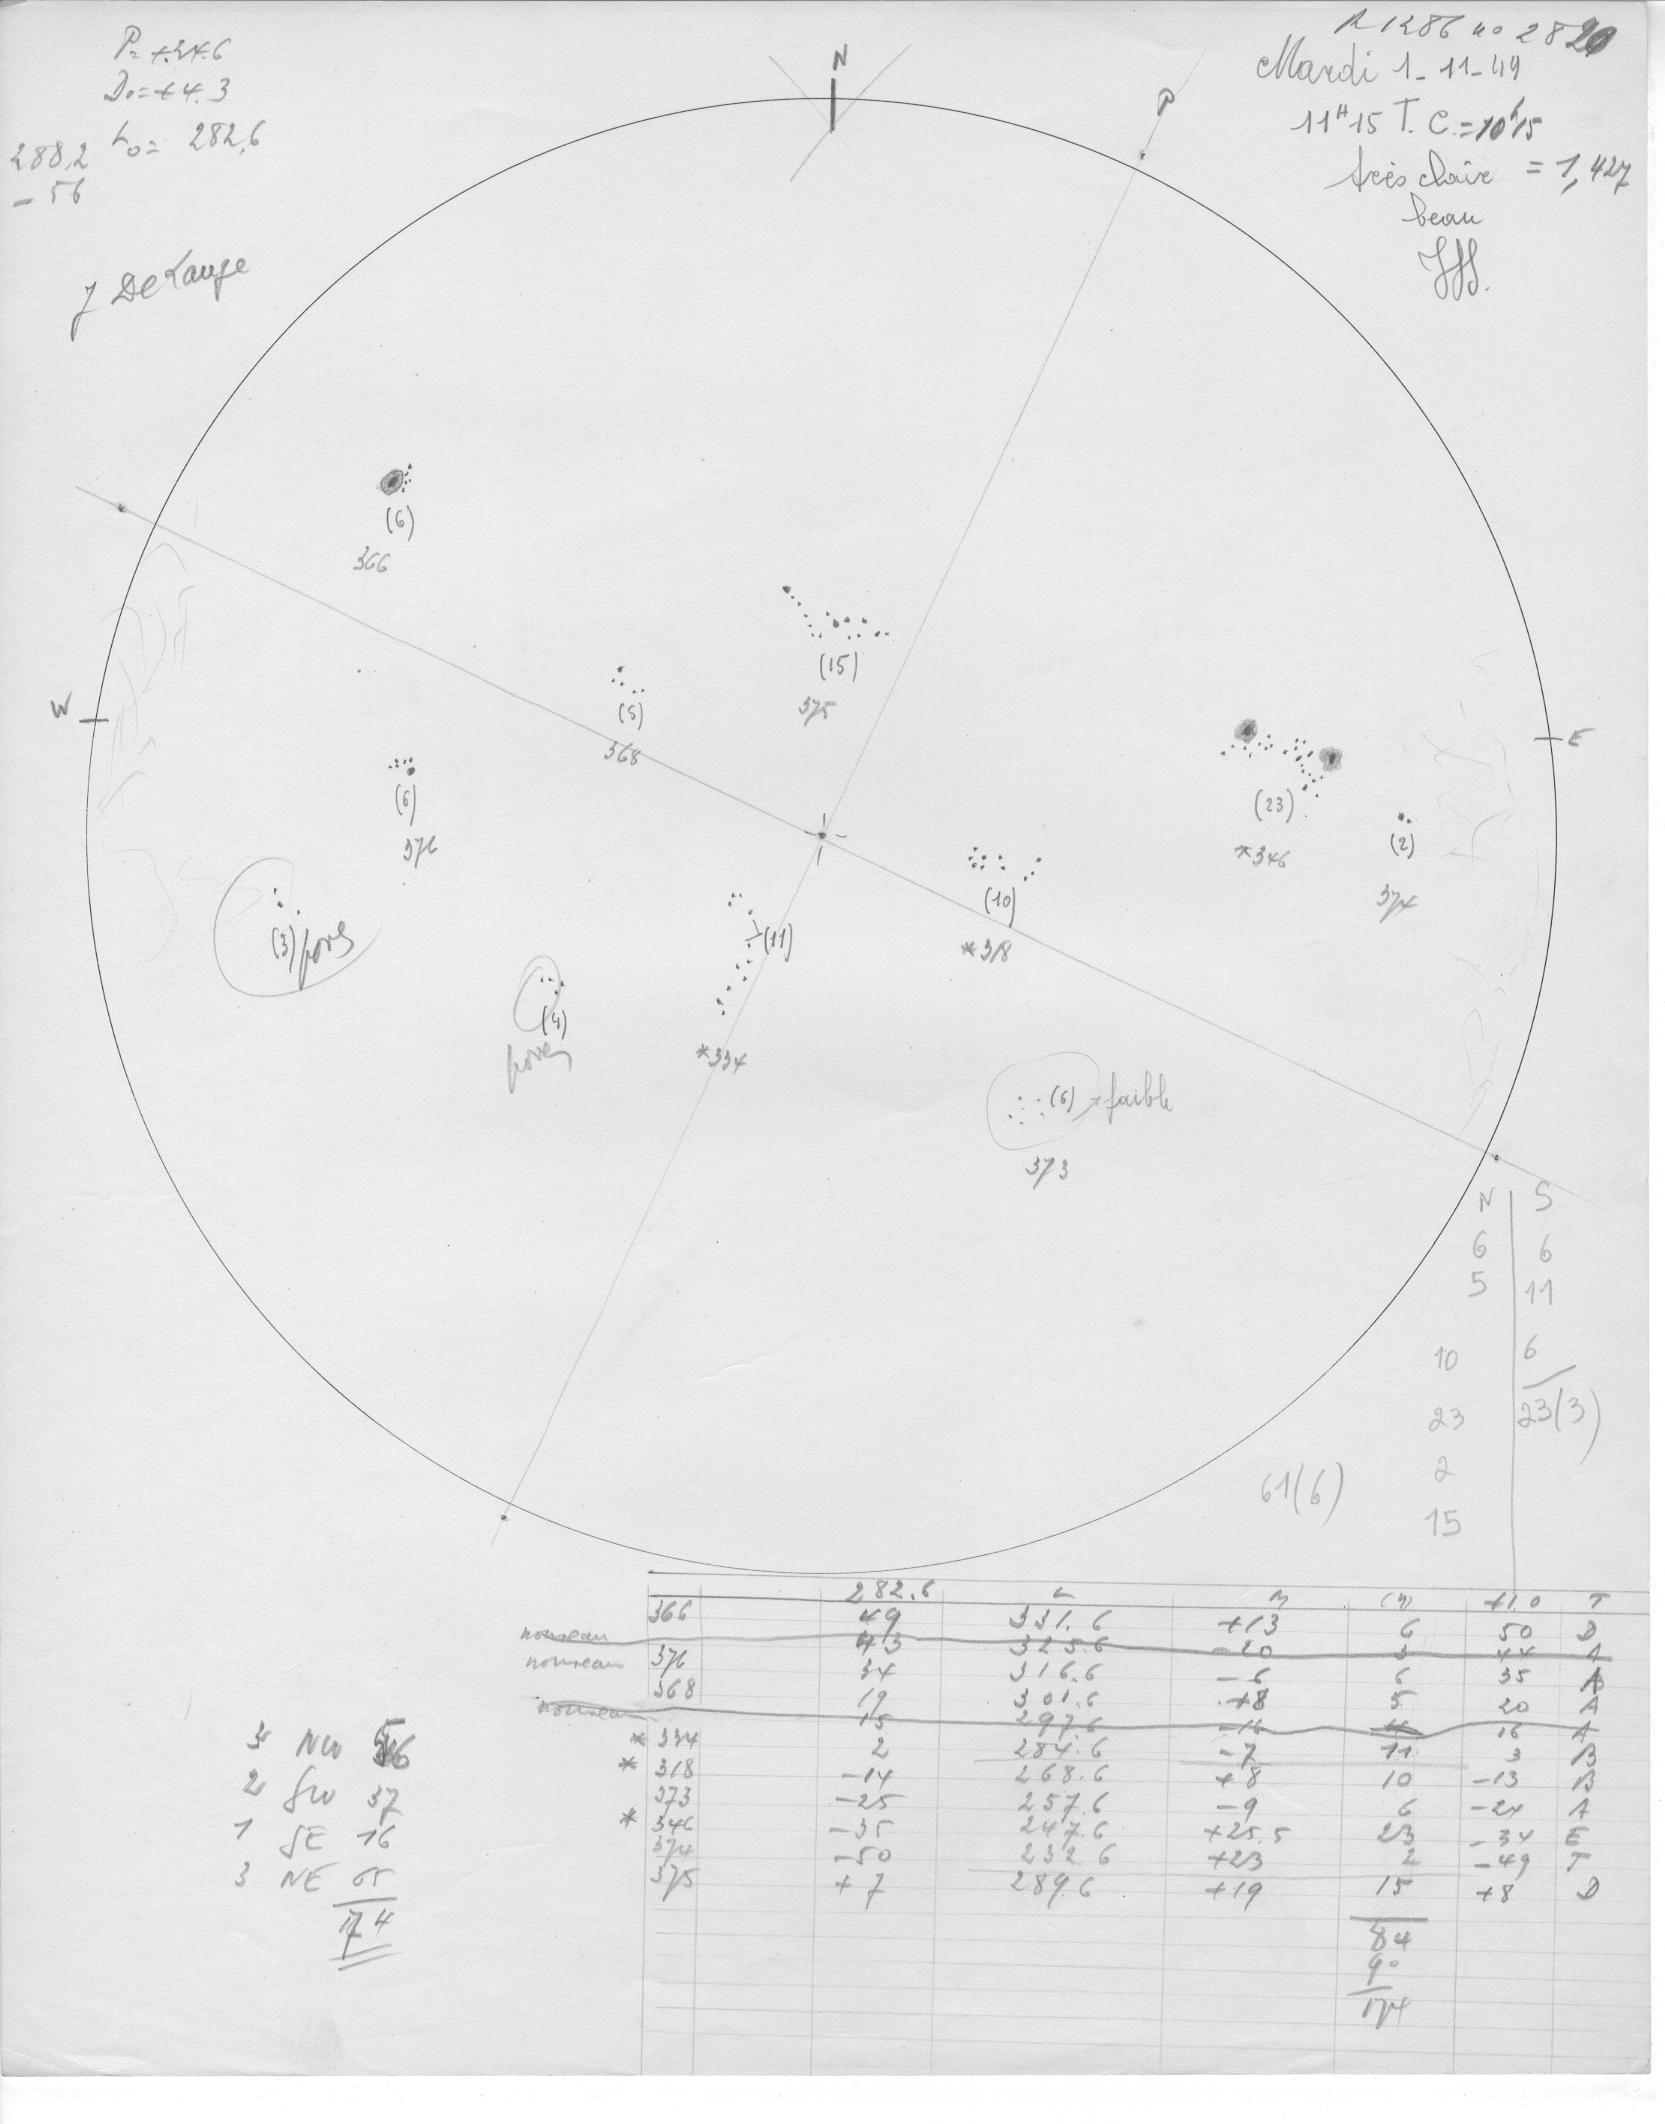 P= +24.6
D₀=+4.3
L₀= 282,6
288,2
- 56
J DeLange
R 1286 no 2820
Mardi 1-11-49
11ᴴ15 T.C.=10ʰ15
très claire = 1,427
beau
N
P
(6)
366
(15)
375
(5)
368
W
E
(6)
376
(23)
*346
(2)
374
(10)
*318
(3) pores
(11)
*334
(4)
pores
(6) → faible
373
N S
6 6
5 11
10 6
23 23(3)
2
61(6)
15
282.6 L (n) +1.0 T
366 49 331.6 +13 6 50 D
nouveau 43 325.6 -20 3 44 A
nouveau 376 34 316.6 -6 6 35 A
368 19 301.6 +8 5 20 A
nouveau 15 297.6 -16 4 16 A
* 334 2 284.6 -7 11 3 B
* 318 -14 268.6 +8 10 -13 B
373 -25 257.6 -9 6 -24 A
* 346 -35 247.6 +25.5 23 -34 E
374 -50 232.6 +23 2 -49 T
375 +7 289.6 +19 15 +8 D
84
90
174
3 NW 56
2 SW 37
1 SE 16
3 NE 65
174